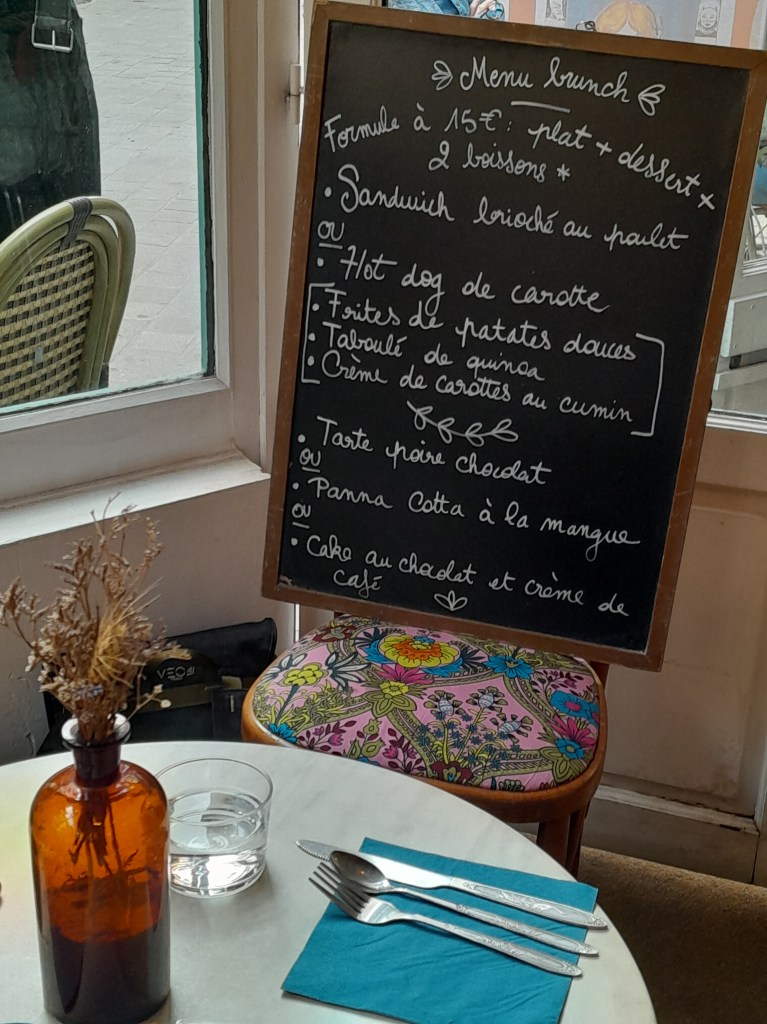 Menu brunch
Formule à 15€: plat + dessert +
2 boissons *
• Sandwich brioché au poulet
ou
• Hot dog de carotte
• Frites de patates douces
• Taboulé de quinoa
• Crème de carottes au cumin
• Tarte poire chocolat
ou
• Panna Cotta à la mangue
ou
• Cake au chocolat et crème de
café
VEO